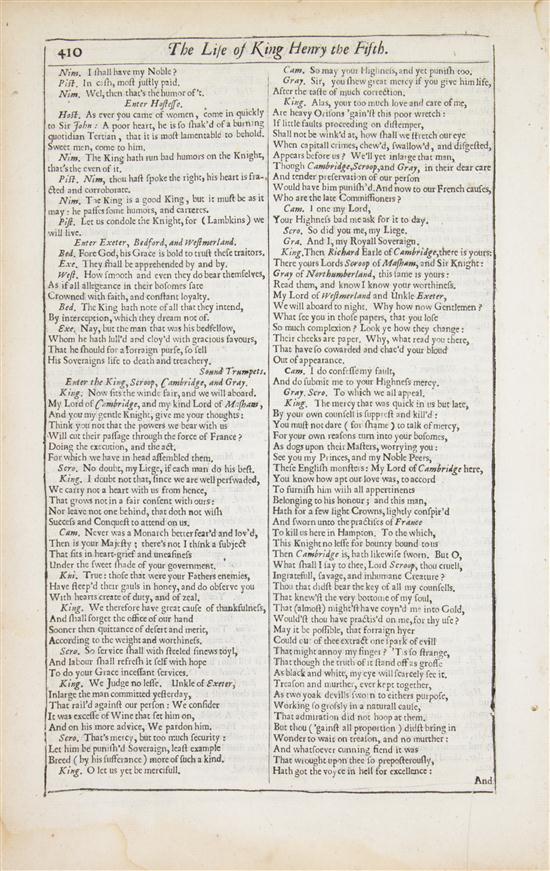 410
The Life of King Henry the Fifth.
Nim. I shall have my Noble?
Pist. In cash, most justly paid.
Nim. Wel, then that's the humor of't.
Enter Hostesse.
Host. As ever you came of women, come in quickly
to Sir John: A poor heart, he is so shak'd of a burning
quotidian Tertian, that it is most lamentable to behold.
Sweet men, come to him.
Nim. The King hath run bad humors on the Knight,
that's the even of it.
Pist. Nim, thou hast spoke the right, his heart is fra-
cted and corroborate.
Nim. The King is a good King, but it must be as it
may: he passes some humors, and careeres.
Pist. Let us condole the Knight, for (Lambkins) we
will live.
Enter Exeter, Bedford, and Westmerland.
Bed. Fore God, his Grace is bold to trust these traitors.
Exe. They shall be apprehended by and by.
West. How smooth and even they do bear themselves,
As if all allegeance in their bosomes sate
Crowned with faith, and constant loyalty.
Bed. The King hath note of all that they intend,
By interception, which they dream not of.
Exe. Nay, but the man that was his bedfellow,
Whom he hath lull'd and cloy'd with gracious favours,
That he should for a forraign purse, so sell
His Soveraigns life to death and treachery.
Sound Trumpets.
Enter the King, Scroop, Cambridge, and Gray.
King. Now sits the winde fair, and we will aboard.
My Lord of Cambridge, and my kind Lord of Masham,
And you my gentle Knight, give me your thoughts:
Think you not that the powers we bear with us
Will cut their passage through the force of France?
Doing the execution, and the act,
For which we have in head assembled them.
Scro. No doubt, my Liege, if each man do his best.
King. I doubt not that, since we are well perswaded,
We carry not a heart with us from hence,
That grows not in a fair consent with ours:
Nor leave not one behind, that doth not wish
Success and Conquest to attend on us.
Cam. Never was a Monarch better fear'd and lov'd,
Then is your Majesty; there's not I think a subject
That sits in heart-grief and uneasiness
Under the sweet shade of your government.
Kni. True: those that were your Fathers enemies,
Have steep'd their gauls in honey, and do observe you
With hearts create of duty, and of zeal.
King. We therefore have great cause of thankfulness,
And shall forget the office of our hand
Sooner then quittance of desert and merit,
According to the weight and worthiness.
Scro. So service shall with steeled sinews toyl,
And labour shall refresh it self with hope
To do your Grace incessant services.
King. We Judge no lesse. Unkle of Exeter,
Inlarge the man committed yesterday,
That rail'd against our person: We consider
It was excesse of Wine that set him on,
And on his more advice, We pardon him.
Scro. That's mercy, but too much security:
Let him be punish'd Soveraign, least example
Breed (by his sufferance) more of such a kind.
King. O let us yet be mercifull.
Cam. So may your Highness, and yet punish too.
Gray. Sir, you shew great mercy if you give him life,
After the taste of much correction.
King. Alas, your too much love and care of me,
Are heavy Orisons 'gainst this poor wretch:
If little faults proceeding on distemper,
Shall not be wink'd at, how shall we stretch our eye
When capitall crimes, chew'd, swallow'd, and digested,
Appears before us? We'll yet inlarge that man,
Though Cambridge, Scroop, and Gray, in their dear care
And tender preservation of our person
Would have him punish'd. And now to our French causes,
Who are the late Commissioners?
Cam. I one my Lord,
Your Highness bad me ask for it to day.
Scro. So did you me, my Liege.
Gra. And I, my Royall Soveraign.
King. Then Richard Earle of Cambridge, there is yours:
There yours Lord Scroop of Masham, and Sir Knight:
Gray of Northumberland, this same is yours:
Read them, and know I know your worthiness.
My Lord of Westmerland and Unkle Exeter,
We will aboard to night. Why how now Gentlemen?
What see you in those papers, that you lose
So much complexion? Look ye how they change:
Their cheeks are paper. Why, what read you there,
That have so cowarded and chac'd your blood
Out of apperance.
Cam. I do confesse my fault,
And do submit me to your Highness mercy.
Gray. Scro. To which we all appeal.
King. The mercy that was quick in us but late,
By your own counsell is supprest and kill'd:
You must not dare (for shame) to talk of mercy,
For your own reasons turn into your bosomes,
As dogs upon their Masters, worrying you:
See you my Princes, and my Noble Peers,
These English monsters: My Lord of Cambridge here,
You know how apt our love was, to accord
To furnish him with all appertinents
Belonging to his honour; and this man,
Hath for a few light Crowns, lightly conspir'd
And sworn unto the practises of France
To kill us here in Hampton. To the which,
This Knight no lesse for bounty bound to us
Then Cambridge is, hath likewise sworn. But O,
What shall I say to thee, Lord Scroop, thou cruell,
Ingratefull, savage, and inhumane Creature?
Thou that didst bear the key of all my counsells.
That knew'st the very bottome of my soul,
That (almost) might'st have coyn'd me into Gold,
Would'st thou have practis'd on me, for thy use?
May it be possible, that forraign hyer
Could out of thee extract one spark of evill
That might annoy my finger? 'T is so strange,
That though the truth of it stand off as grosse
As black and white, my eye will scarcely see it.
Treason and murther, ever kept together,
As two yoak devills sworn to eithers purpose,
Working so grossly in a naturall cause,
That admiration did not hoop at them.
But thou ('gainst all proportion) didst bring in
Wonder to wait on treason, and no murther:
And whatsoever cunning fiend it was
That wrought upon thee so preposterously,
Hath got the voyce in hell for excellence:
And